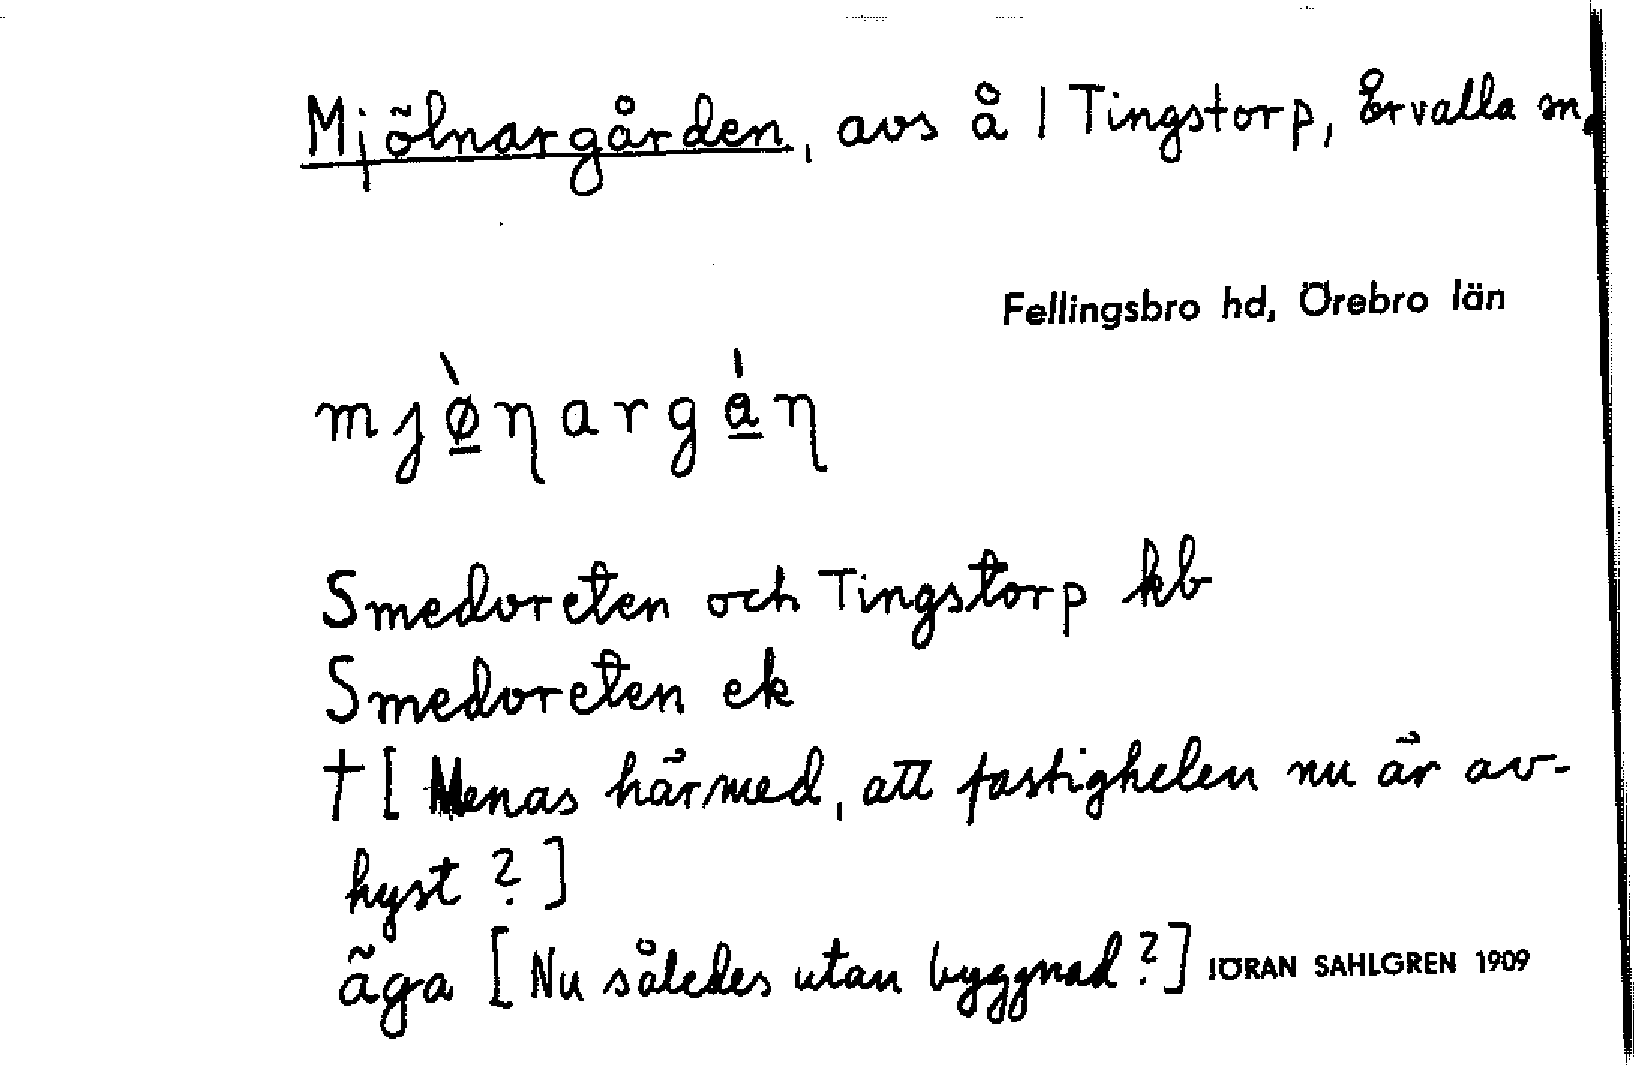 Mjölnargården, avs å / Tingstorp, Ervalla sn,
Fellingsbro hd, Örebro län
mjø̲̀ŋargá̲ŋ
Smedvreten och Tingstorp kb
Smedvreten ek
† [Menas härmed, att fastigheten nu är av-
hyst ?]
äga [Nu således utan byggnad ?] JÖRAN SAHLGREN 1909